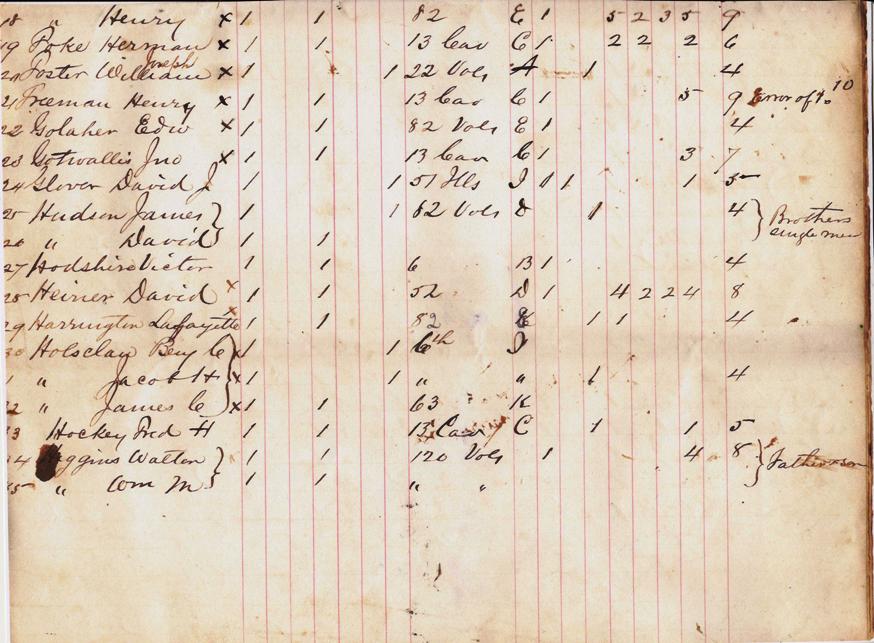 18 " Henry x 1 1 82 E 1 5 2 3 5 9
19 Poke Herman x 1 1 13 Cav C 1 2 2 2 6
Joseph
20 Foster William x 1 1 22 Vols A 1 4
21 Freeman Henry x 1 1 13 Cav C 1 5 9 Error of 10
22 Golaher Edw x 1 82 Vols E 1 4
23 Gotwallis Jno x 1 1 13 Cav C 1 3 7
24 Glover David J 1 1 51 Ills I 1 1 1 5
25 Hudson James } 1 1 82 Vols D 1 4 } Brothers
single men
26 " David } 1 1
27 Hodshire Victor 1 1 6 B 1 4
28 Heiner David x 1 1 52 D 1 4 2 2 4 8
29 Harrington Lafayette x 1 1 82 E 1 1 4
30 Holsclaw Benj C x 1 1 6th I
1 " Jacob H x 1 1 " " 1 4
32 " James C x 1 1 63 K
33 Hockey Fred H 1 1 13 Cav C 1 1 5
34 Higgins Walton } 1 1 120 Vols 1 4 8 } Father & son
35 " Wm M } 1 1 " "